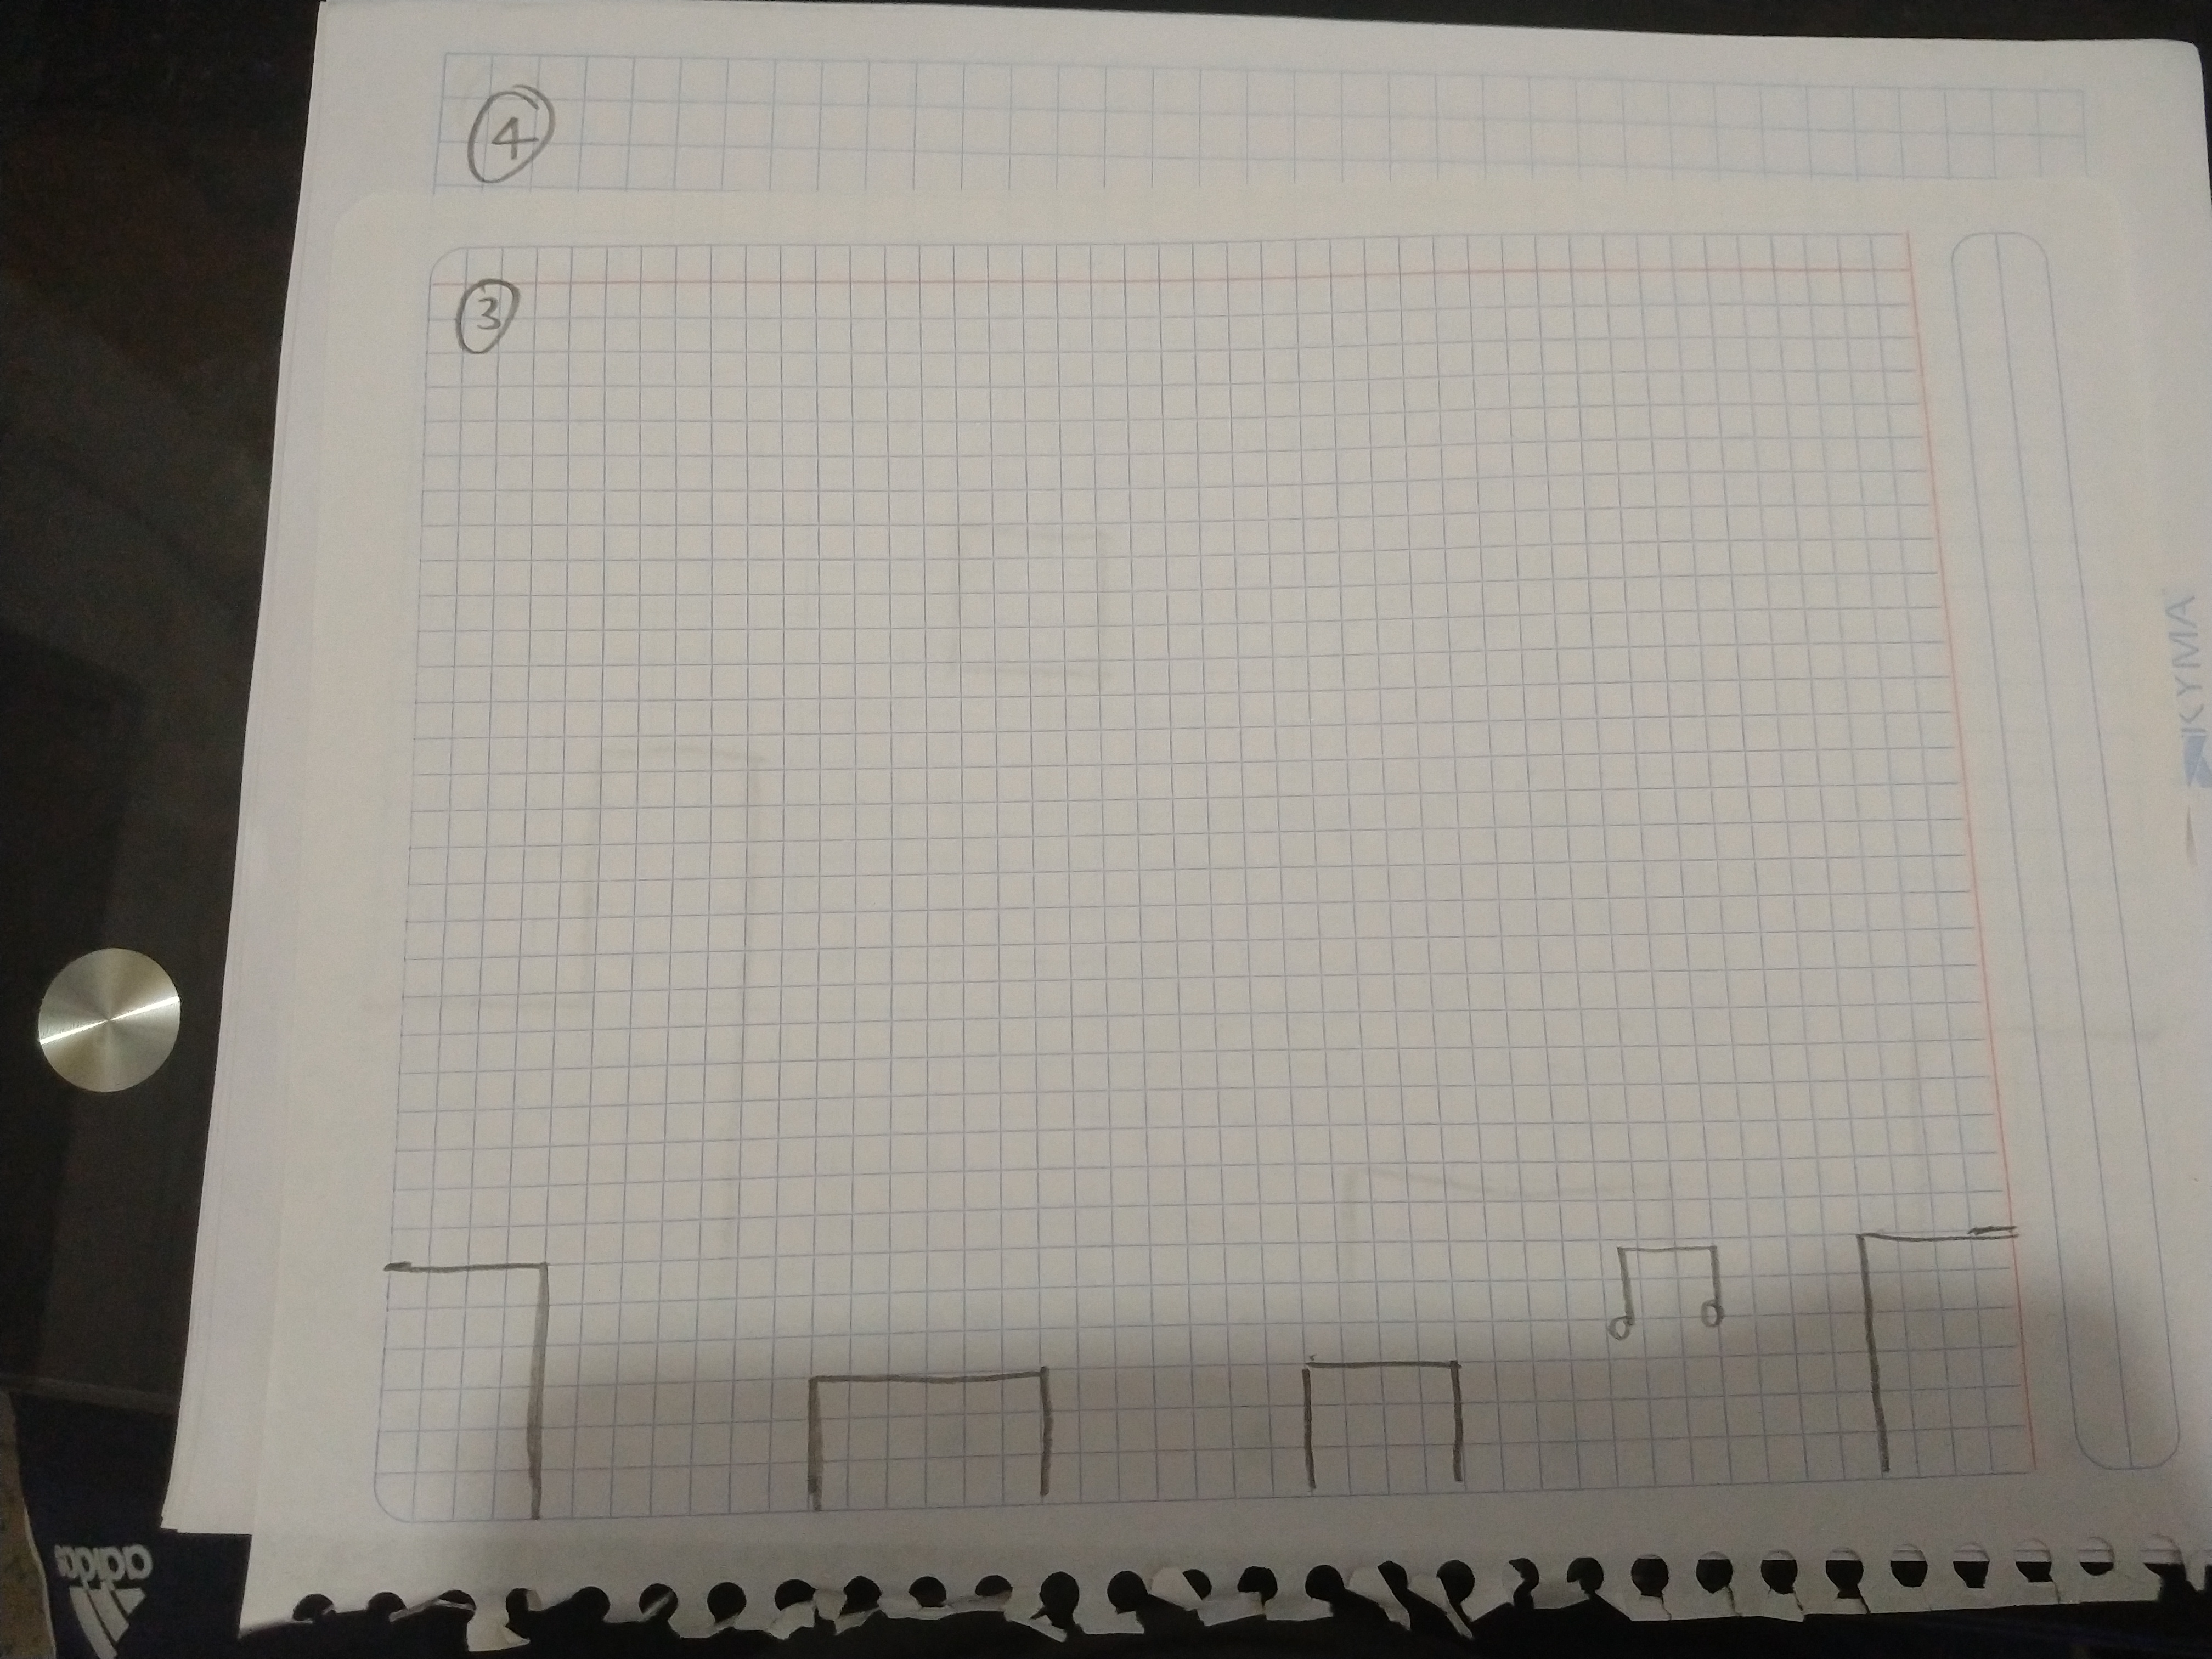 4
3
KYMA
adidas